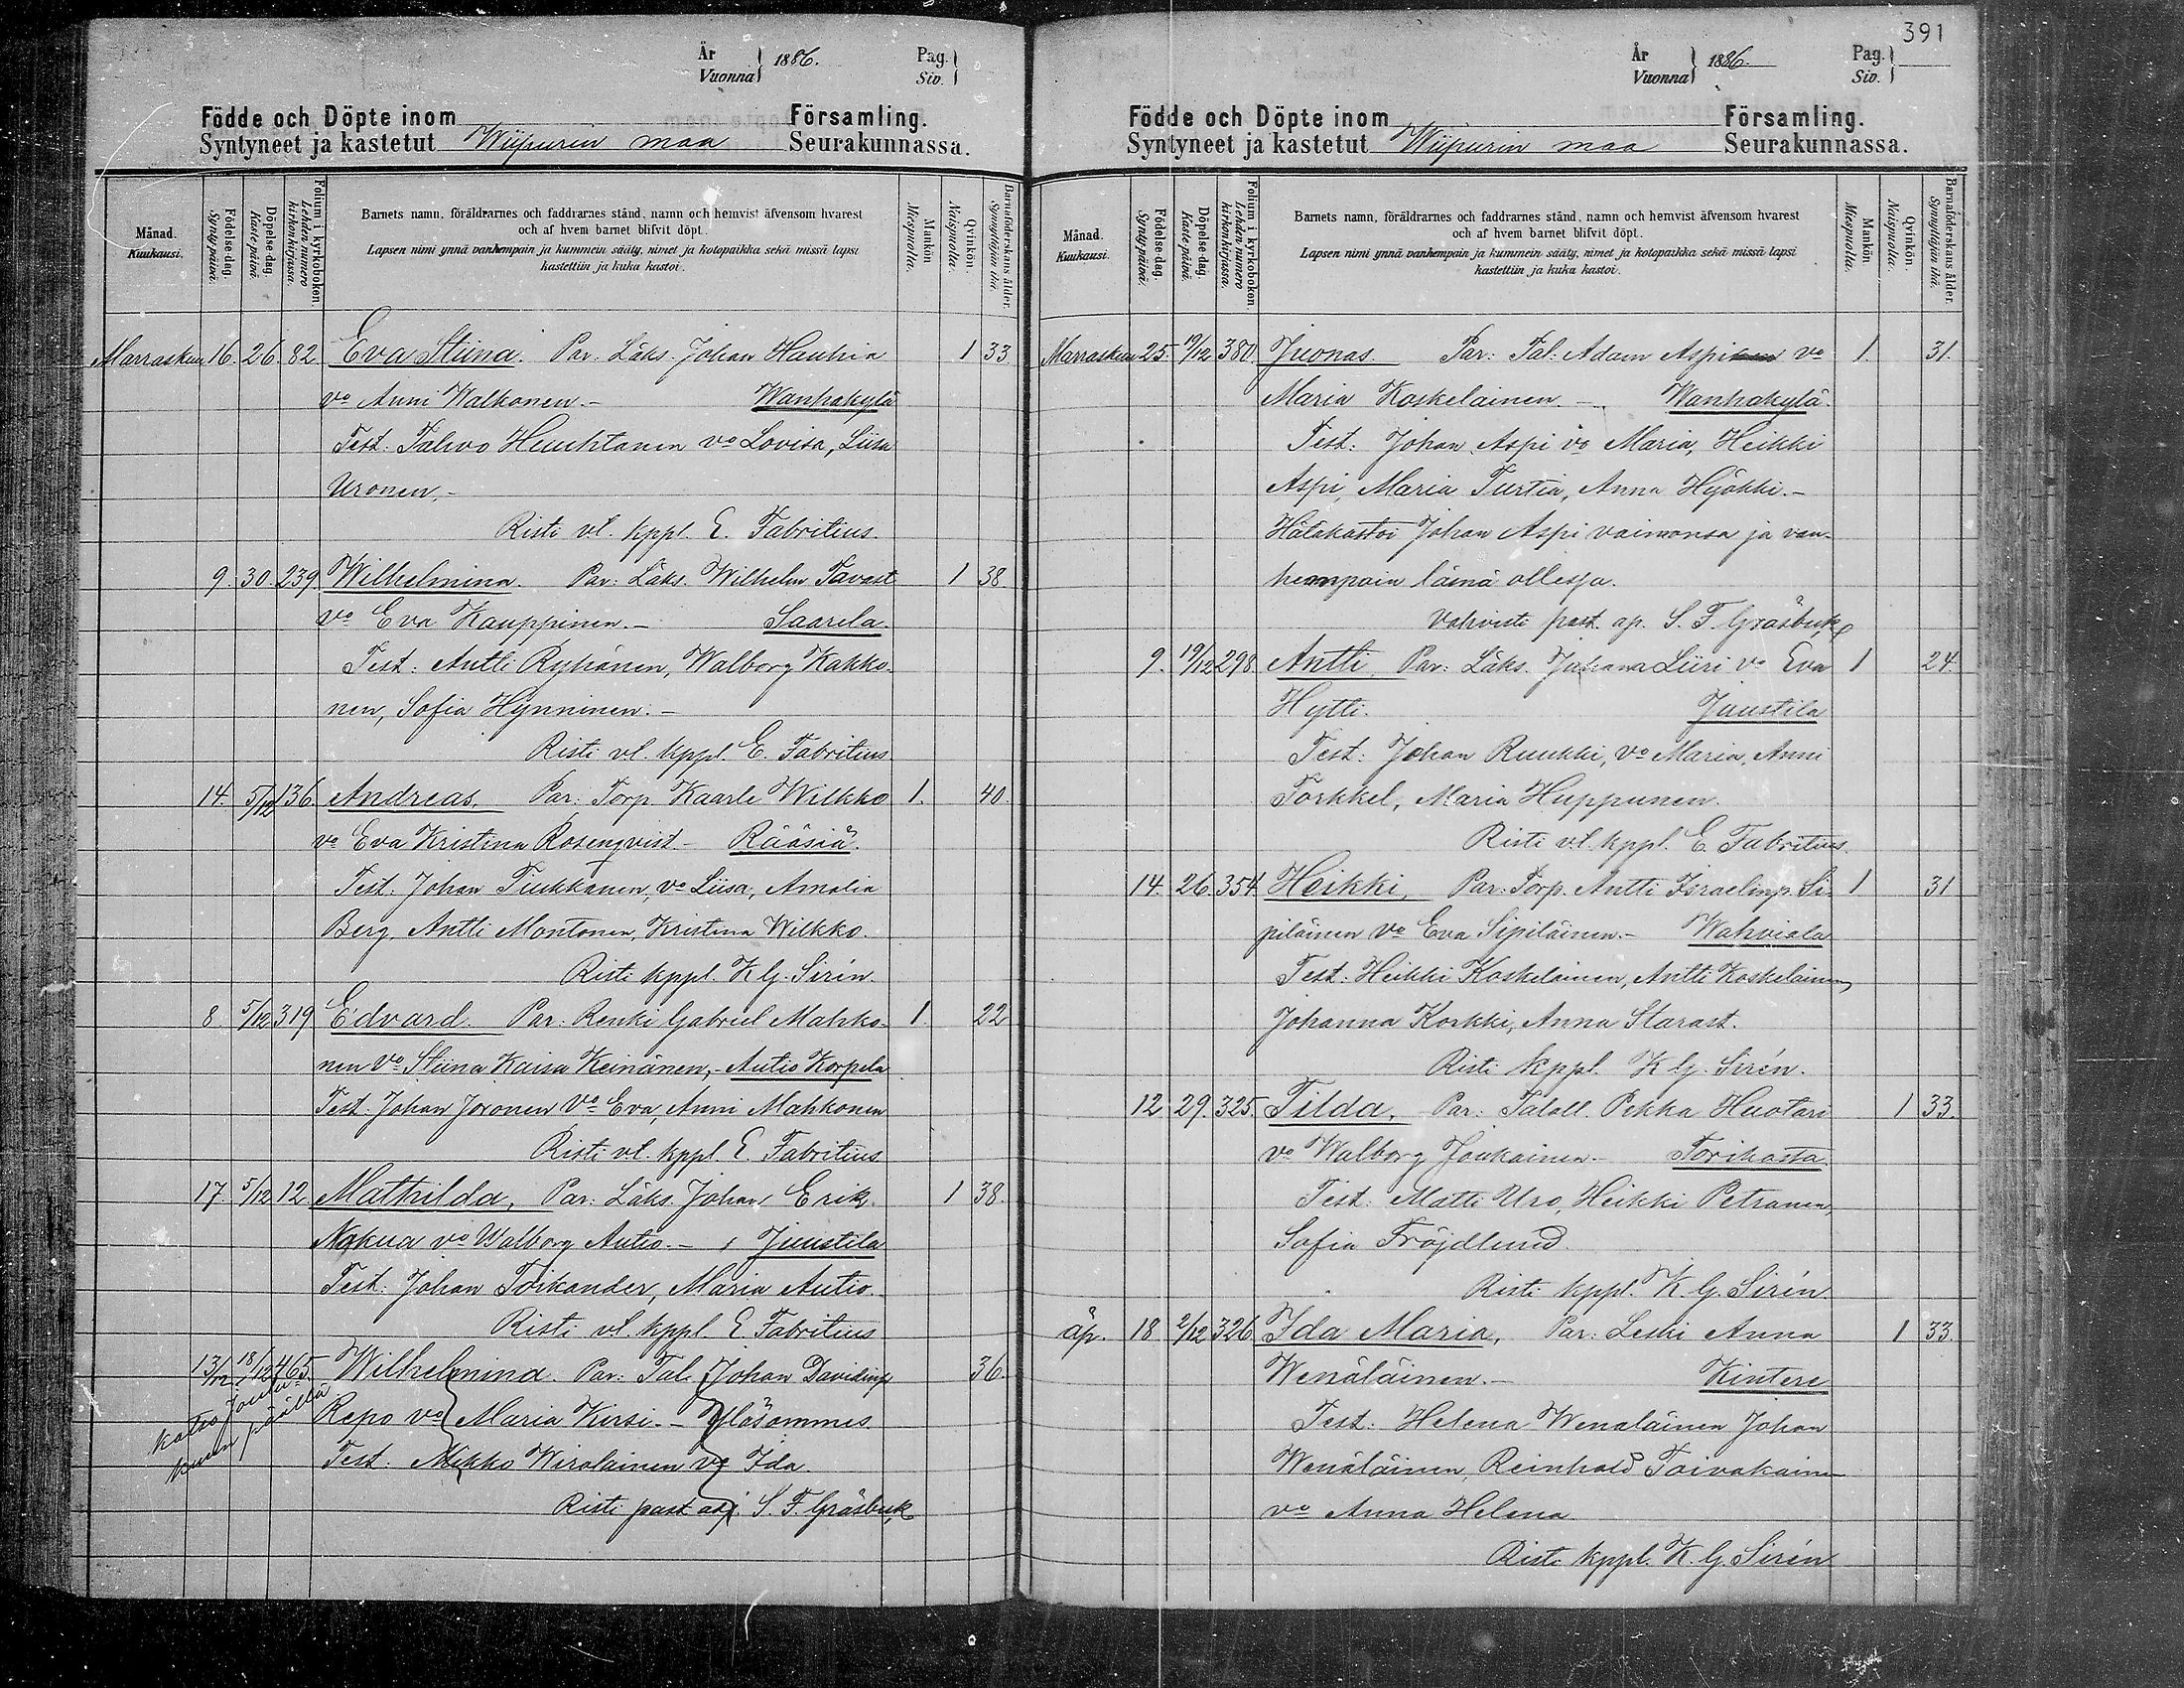 År
Vuonna } 1886. Pag.
Siv.
Födde och Döpte inom Församling.
Syntyneet ja kastetut Wiipurin maa Seurakunnassa.
Månad.
Kuukausi.
Födelse-dag.
Syntypäivä.
Döpelse-dag.
Kastepäivä.
Folium i kyrkoboken.
Lehden numero
kirkonkirjassa.
Barnets namn, föräldrarnes och faddrarnes stånd, namn och hemvist äfvensom hvarest
och af hvem barnet blifvit döpt.
Lapsen nimi ynnä vanhempain ja kummein sääty, nimet ja kotopaikka sekä missä lapsi
kastettiin ja kuka kastoi.
Mankön
Miespuolta.
Qvinkön.
Naispuolta.
Barnaföderskans ålder.
Synnyttäjän ikä.
Marraskuu 16. 26. 82. Eva Stiina. Par: Läks. Johan Hauhia 1 33
vo Anni Walkonen.- Wanhakylä
Test: Tahvo Huuhtanen vo Lovisa, Liisa
Uronen,-
Risti vl. kppl. E. Fabritius.
9. 30. 239. Wilhelmina. Par: Läks. Wilhelm Tavast 1 38.
vo Eva Kauppinen.- Saarela.
Test: Antti Ryhänen, Walborg Kakko-
nen, Sofia Hynninen.-
Risti vl. kppl. E. Fabritius
14. 5/12 136. Andreas. Par: Torp. Kaarle Wilkko 1. 40.
vo Eva Kristina Rosenqvist.- Rääsiä.
Test. Johan Tiukkanen, vo Liisa, Amalia
Berg, Antti Montonen, Kristina Wilkko.
Risti kppl. K G. Sirén.
8. 5/12 319 Edvard. Par: Renki Gabriel Mahko- 1. 22
nen vo Stiina Kaisa Keinänen,- Autio Korpela
Test: Johan Joronen Vo Eva, Anni Mahkonen
Risti vl. kppl E. Fabritius
17. 5/12 12 Mathilda, Par: Läks. Johan Erik 1 38.
Nokua vo Walborg Autio.- Juustila
Test: Johan Toikander, Maria Autio.
Risti vl. kppl. E Fabritius
13/12. 18/12 465. Wilhelmina. Par: Tal. Johan Davidinp 36
katso Joulu-
kuun päällä
Repo vo Maria Kirsi.- Yläsommes.
Test. Mikko Wirolainen vo Ida.
Risti past adj. S. F. Gräsbeck
391
År
Vuonna } 1886. Pag.
Siv.
Födde och Döpte inom Församling.
Syntyneet ja kastetut Wiipurin maa Seurakunnassa.
Månad.
Kuukausi.
Födelse-dag.
Syntypäivä.
Döpelse-dag.
Kastepäivä.
Folium i kyrkoboken.
Lehden numero
kirkonkirjassa.
Barnets namn, föräldrarnes och faddrarnes stånd, namn och hemvist äfvensom hvarest
och af hvem barnet blifvit döpt.
Lapsen nimi ynnä vanhempain ja kummein sääty, nimet ja kotopaikka sekä missä lapsi
kastettiin ja kuka kastoi.
Mankön
Miespuolta.
Qvinkön.
Naispuolta.
Barnaföderskans ålder.
Synnyttäjän ikä.
Marraskuu 25. 19/12 380. Juonas. Par: Tal: Adam Aspi vo 1. 31.
Maria Koskelainen.- Wanhakylä.
Test: Johan Aspi vo Maria, Heikki
Aspi, Maria Turtia, Anna Hyökki.-
Hätäkastoi Johan Aspi vaimonsa ja van-
hempain läsnä ollessa.
Vahvisti past. ap. S. F. Gräsbeck
9. 19/12 298. Antti, Par: Läks. Juhana Liiri vo Eva 1 24.
Hytti. Juustila
Test: Johan Ruukki, vo Maria, Anni
Torkkel, Maria Huppunen.
Risti vl. kppl. E. Fabritius.
14. 26. 354. Heikki, Par: Torp. Antti Israelinp. Si- 1 31
piläinen vo Eva Sipiläinen.- Wahviala
Test: Heikki Koskelainen, Antti Koskelainen,
Johanna Korkki, Anna Starast.
Risti kppl. K G. Sirén.
12 29. 325. Tilda, Par: Taloll. Pekka Huotari 1 33.
vo Walborg Joukainen.- Torikasta.
Test: Matti Uro, Heikki Petranen,
Sofia Fröjdlund.
Risti kppl. K. G. Sirén.
äp. 18 2/12 326 Ida Maria, Par: Leski Anna 1 33.
Wenäläinen.- Kintere
Test: Helena Wenäläinen Johan
Wenäläinen, Reinhold Toivakainen
vo Anna Helena
Risti kppl. K. G. Sirén